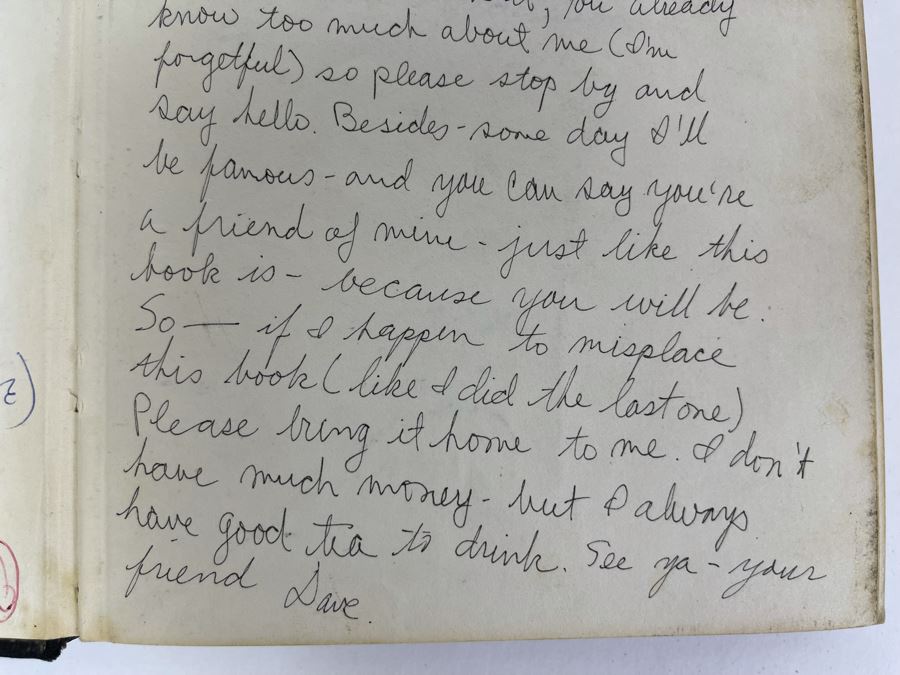 you already
know too much about me (I'm
forgetful) so please stop by and
say hello. Besides - some day I'll
be famous - and you can say you're
a friend of mine - just like this
book is - because you will be.
So — if I happen to misplace
this book (like I did the last one)
Please bring it home to me. I don't
have much money - but I always
have good tea to drink. See ya - your
friend Dave.